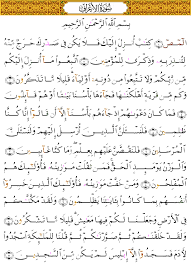 سُورَةُ الأَعْرَافِ
بِسْمِ اللَّهِ الرَّحْمَٰنِ الرَّحِيمِ
الٓمٓصٓ ١ كِتَٰبٌ أُنزِلَ إِلَيْكَ فَلَا يَكُن فِي صَدْرِكَ حَرَجٌ مِّنْهُ
لِتُنذِرَ بِهِۦ وَذِكْرَىٰ لِلْمُؤْمِنِينَ ٢ ٱتَّبِعُوا۟ مَآ أُنزِلَ إِلَيْكُم
مِّن رَّبِّكُمْ وَلَا تَتَّبِعُوا۟ مِن دُونِهِۦٓ أَوْلِيَآءَ قَلِيلًا مَّا تَذَكَّرُونَ ٣
وَكَم مِّن قَرْيَةٍ أَهْلَكْنَٰهَا فَجَآءَهَا بَأْسُنَا بَيَٰتًا أَوْ هُمْ قَآئِلُونَ ٤
فَمَا كَانَ دَعْوَىٰهُمْ إِذْ جَآءَهُم بَأْسُنَآ إِلَّآ أَن قَالُوٓا۟ إِنَّا كُنَّا
ظَٰلِمِينَ ٥ فَلَنَسْـَٔلَنَّ ٱلَّذِينَ أُرْسِلَ إِلَيْهِمْ وَلَنَسْـَٔلَنَّ
ٱلْمُرْسَلِينَ ٦ فَلَنَقُصَّنَّ عَلَيْهِم بِعِلْمٍ وَمَا كُنَّا غَآئِبِينَ ٧
وَٱلْوَزْنُ يَوْمَئِذٍ ٱلْحَقُّ فَمَن ثَقُلَتْ مَوَٰزِينُهُۥ فَأُو۟لَٰٓئِكَ هُمُ
ٱلْمُفْلِحُونَ ٨ وَمَنْ خَفَّتْ مَوَٰزِينُهُۥ فَأُو۟لَٰٓئِكَ ٱلَّذِينَ خَسِرُوٓا۟
أَنفُسَهُم بِمَا كَانُوا۟ بِـَٔايَٰتِنَا يَظْلِمُونَ ٩ وَلَقَدْ مَكَّنَّٰكُمْ
فِي ٱلْأَرْضِ وَجَعَلْنَا لَكُمْ فِيهَا مَعَٰيِشَ قَلِيلًا مَّا تَشْكُرُونَ ١٠
وَلَقَدْ خَلَقْنَٰكُمْ ثُمَّ صَوَّرْنَٰكُمْ ثُمَّ قُلْنَا لِلْمَلَٰٓئِكَةِ ٱسْجُدُوا۟
لِـَٔادَمَ فَسَجَدُوٓا۟ إِلَّآ إِبْلِيسَ لَمْ يَكُن مِّنَ ٱلسَّٰجِدِينَ ١١